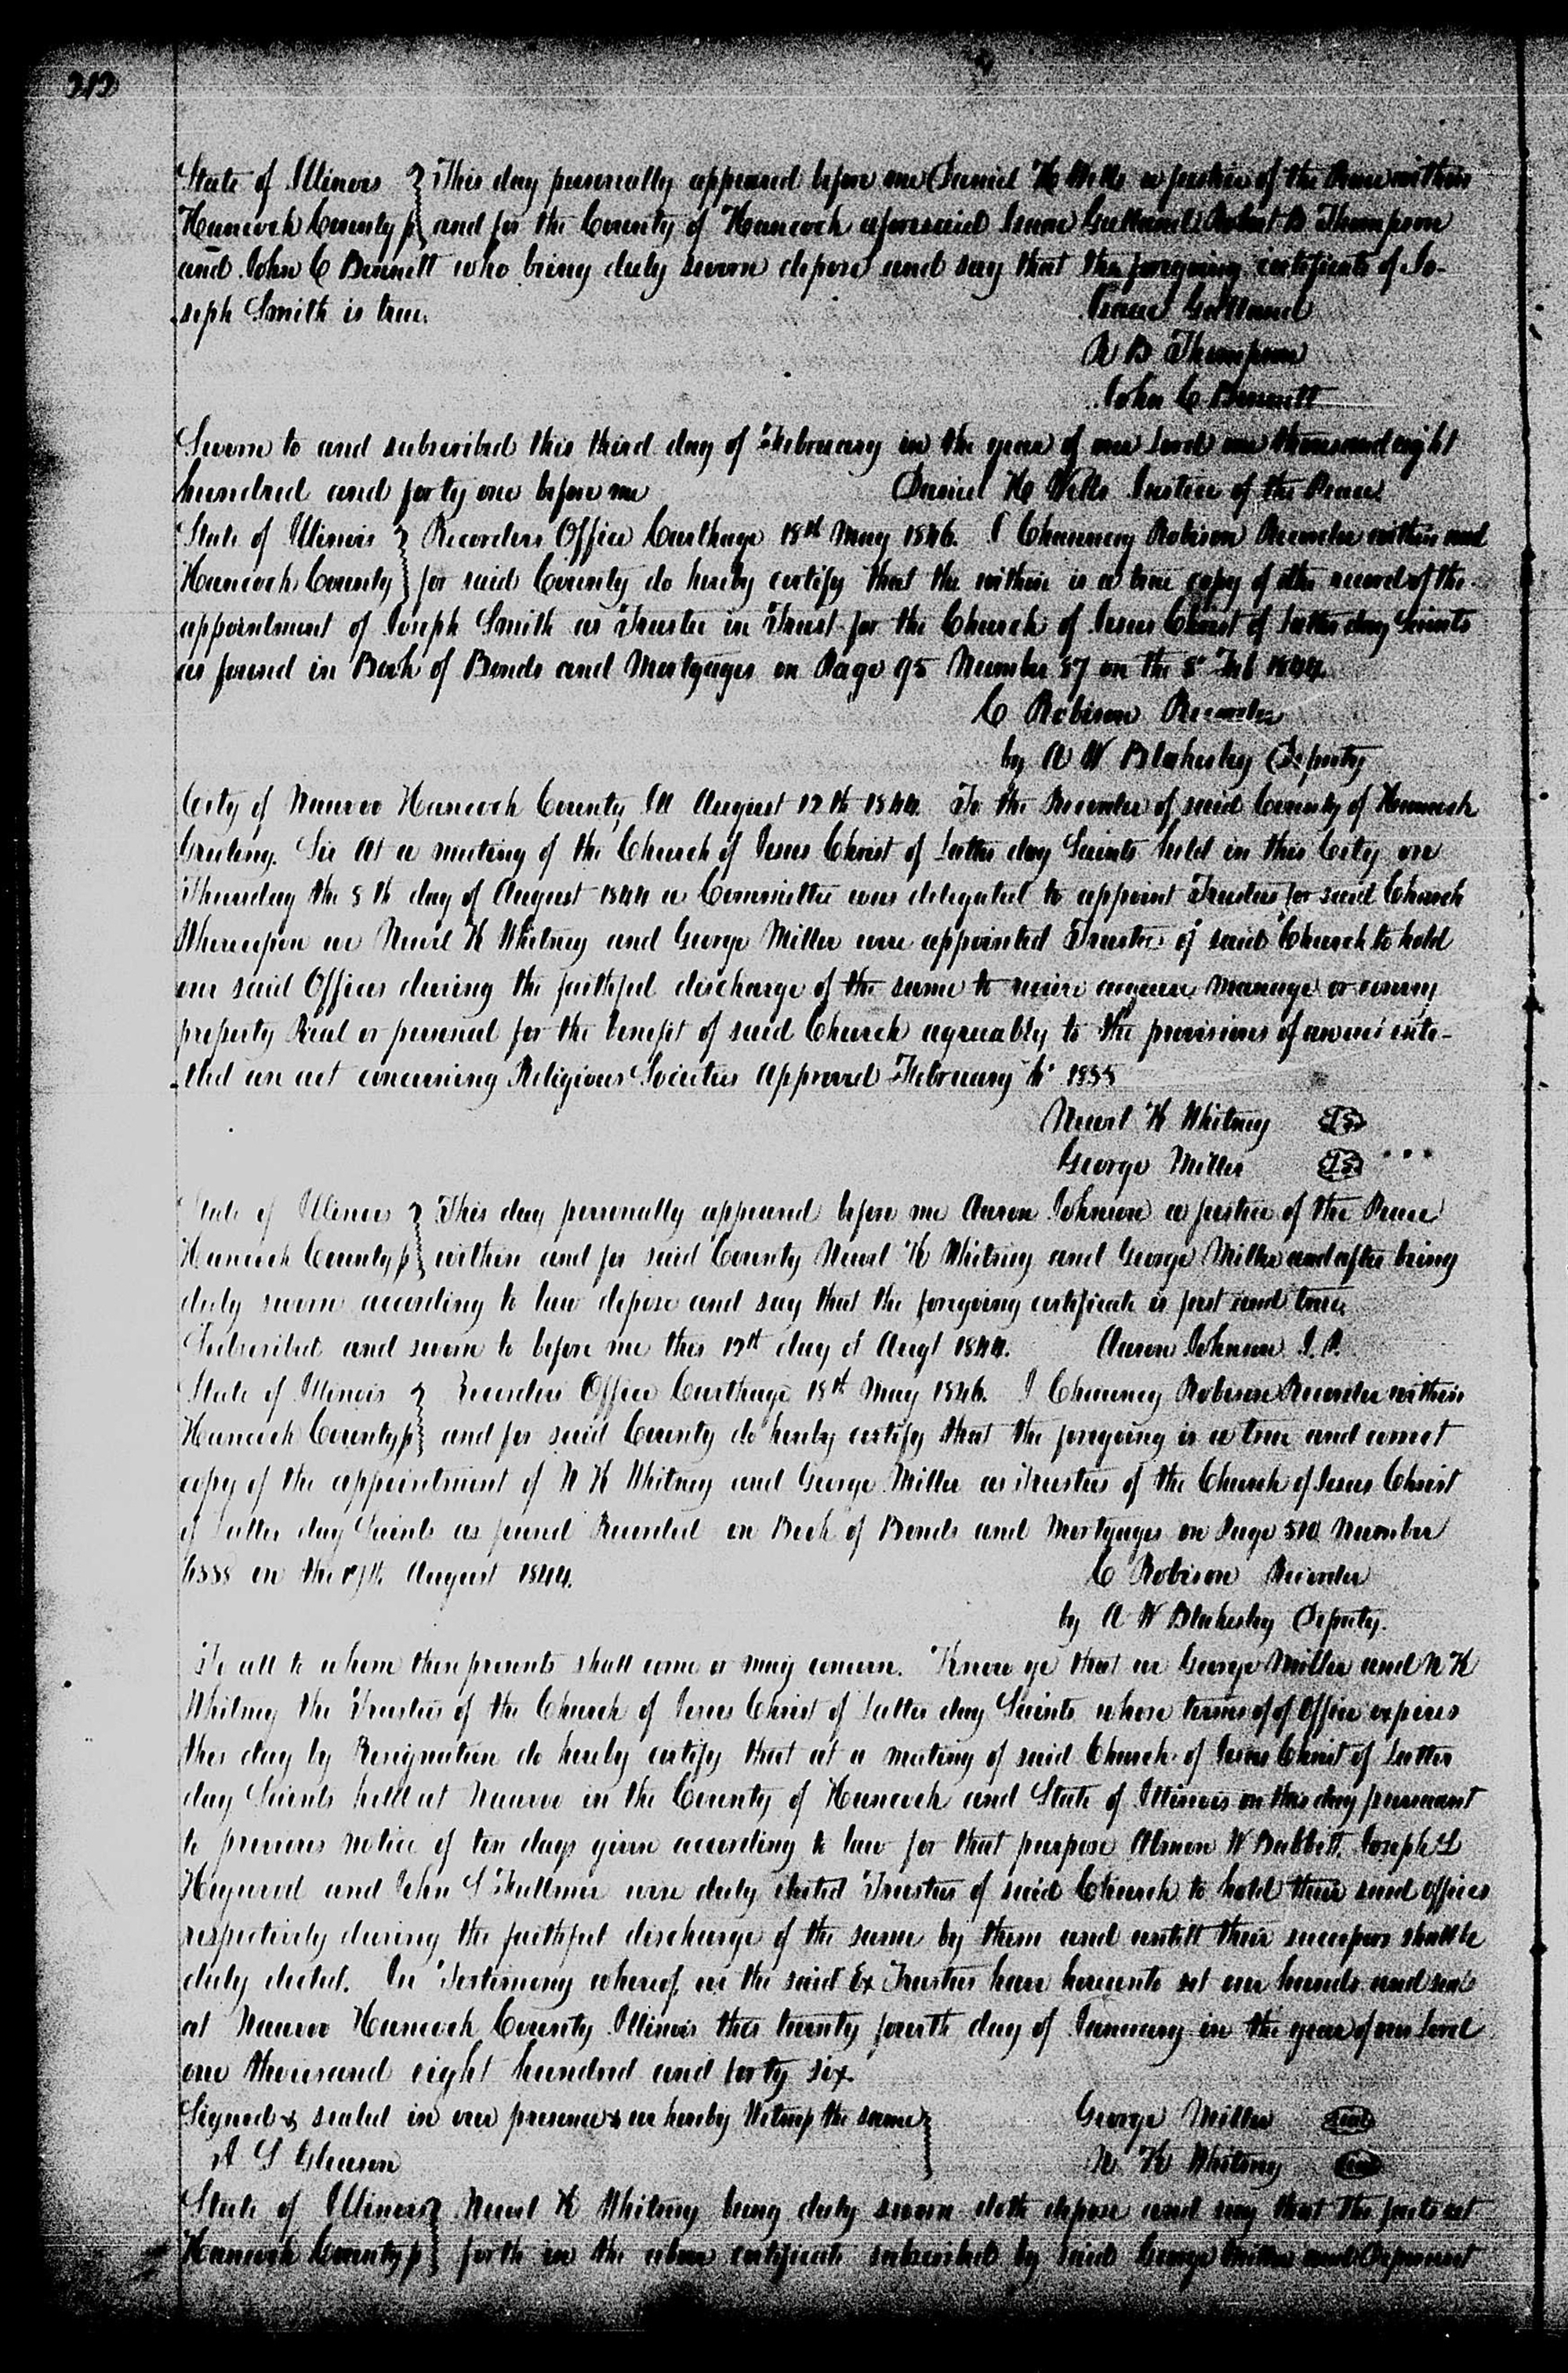 212
State of Illinois } This day personally appeared before me Daniel H Wells a justice of the Peace within
Hancock County ss } and for the County of Hancock aforesaid Isaac Galland Robert B Thompson
and John C Bennett who being duly sworn depose and say that the foregoing certificate of Jo-
-seph Smith is true.
Isaac Galland
R B Thompson
John C Bennett
Sworn to and subscribed this third day of February in the year of our Lord one thousand eight
hundred and forty one before me Daniel H Wells Justice of the Peace
State of Illinois } Recorders Office Carthage 18th May 1846. I Chauncey Robison Recorder within and
Hancock County } for said County do hereby certify that the within is a true copy of the record of the
appointment of Joseph Smith as Trustee in Trust for the Church of Jesus Christ of Latter day Saints
as found in Book of Bonds and Mortgages on Page 95 Number 87 on the 8th Feb
C Robison Recorder
by A W Blakesley Deputy
City of Nauvoo Hancock County Ill August 12th 1844. To the Recorder of said County of Hancock
Greeting. Sir At a meeting of the Church of Jesus Christ of Latter day Saints held in this City on
Thursday the 8th day of August 1844 a Committee was delegated to appoint Trustees for said Church
Whereupon we Newel K Whitney and George Miller were appointed Trustees of said Church to hold
our said Offices during the faithful discharge of the same to receive acquire manage or convey
property Real or personal for the benefit of said Church agreeably to the provisions of an act inti-
-tled an act concerning Religious Societies Approved February 1835
Newel K Whitney LS
George Miller LS
State of Illinois } This day personally appeared before me Aaron Johnson a justice of the Peace
Hancock County ss } within and for said County Newel K Whitney and George Miller and after being
duly sworn according to law depose and say that the foregoing certificate is just and true.
Subscribed and sworn to before me this 12th day of Augt 1844. Aaron Johnson J. P.
State of Illinois } Recorders Office Carthage 18th May 1846. I Chauncey Robison Recorder within
Hancock County ss } and for said County do hereby certify that the foregoing is a true and correct
copy of the appointment of N K Whitney and George Miller as Trustees of the Church of Jesus Christ
of Latter day Saints as found Recorded on Book of Bonds and Mortgages on Page 510 Number
on the August 1844. C Robison Recorder
by A W Blakesley Deputy.
To all to whom these presents shall come or may concern. Know ye that we George Miller and N K
Whitney the Trustees of the Church of Jesus Christ of Latter day Saints whose terms of of Office expires
this day by Resignation do hereby certify that at a meeting of said Church of Jesus Christ of Latter
day Saints held at Nauvoo in the County of Hancock and State of Illinois on this day pursuant
to previous notice of ten days given according to law for that purpose Almon W Babbitt, Joseph L
Heywood and John S Fullmer were duly elected Trustees of said Church to hold their said offices
respectively during the faithful discharge of the same by them and untill their successors shall be
duly elected. In Testimony whereof, we the said Ex Trustees have hereunto set our hands and seals
at Nauvoo Hancock County Illinois this twenty fourth day of January in the year of our Lord
one thousand eight hundred and forty six.
Signed & sealed in our presence & we hereby Witness the same } George Miller Seal
A S Gleason N K Whitney Seal
State of Illinois } Newel K Whitney being duly sworn doth depose and say that the facts set
Hancock County ss } forth in the above certificate subscribed by said George Miller and Deponent